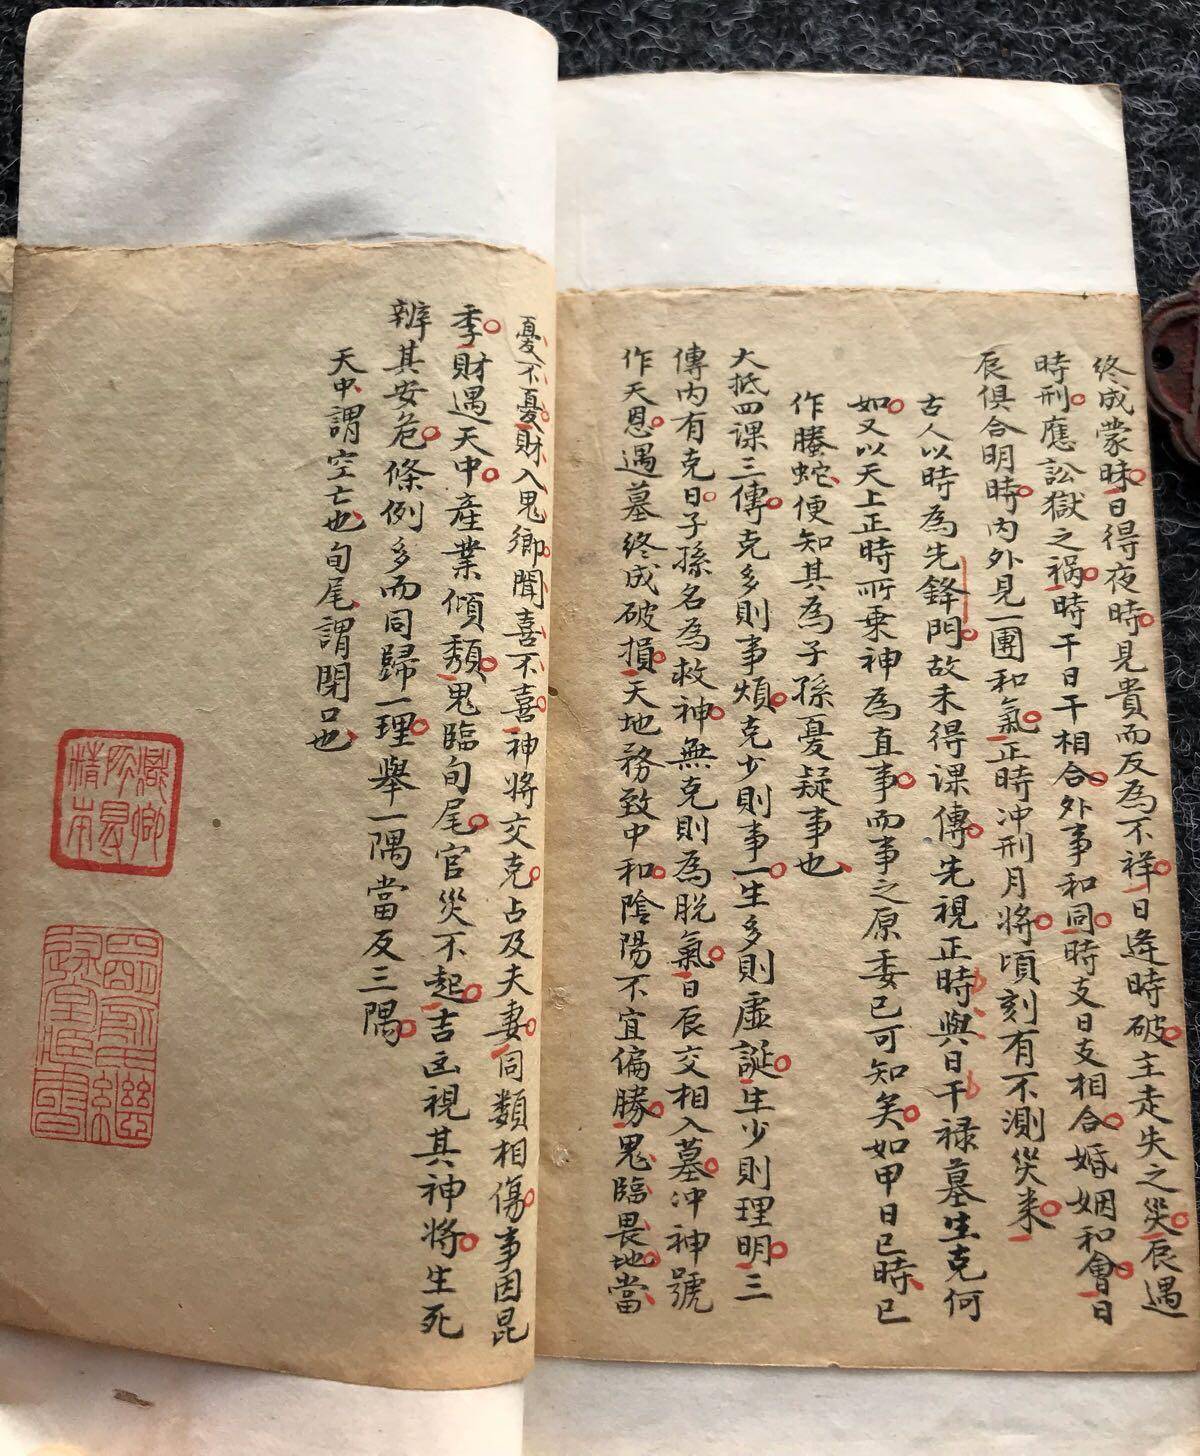 終成蒙昧日得夜時見貴而反為不祥日逢時破主走失之災辰遇
時刑應訟獄之禍時干日干相合外事和同時支日支相合婚姻和會日
辰俱合明時內外見一團和氣正時冲刑月將頃刻有不測災来
古人以時為先鋒門故未得課傳先視正時與日干祿墓生克何
如又以天上正時所乗神為直事而事之原委已可知矣如甲日巳時巳
作螣蛇便知其為子孫憂疑事也
大抵四課三傳克多則事煩克少則事一生多則虛誕生少則理明三
傳內有克日子孫名為救神無克則為脱氣日辰交相入墓冲神號
作天恩遇墓終成破損天地務致中和陰陽不宜偏勝鬼臨畏地當
憂不憂財入鬼鄉聞喜不喜神將交克占及夫妻同類相傷事因昆
季財遇天中產業傾頹鬼臨旬尾官災不起吉凶視其神將生死
辨其安危條例多而同歸一理舉一隅當反三隅
天中謂空亡也旬尾謂閉口也